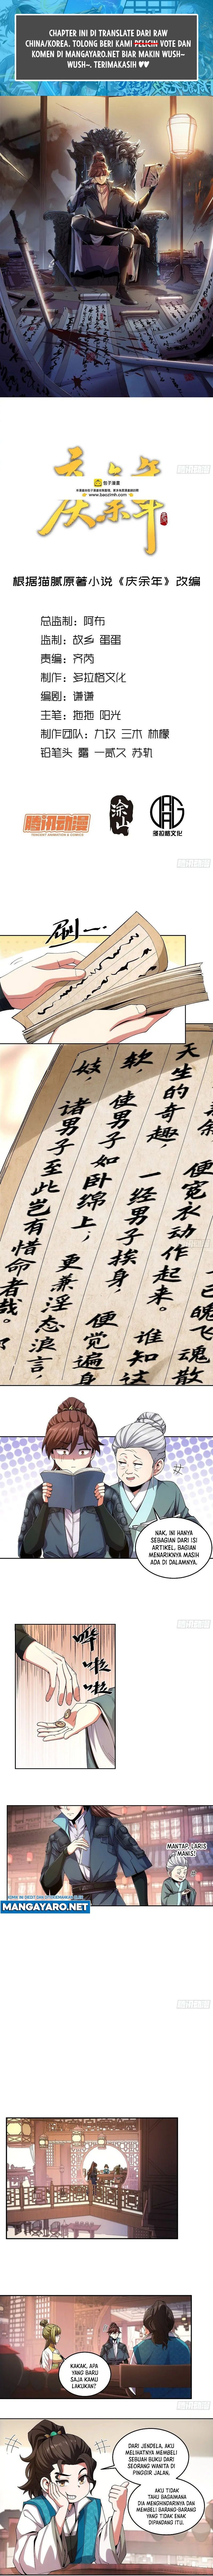 CHAPTER INI DI TRANSLATE DARI RAW
CHINA/KOREA. TOLONG BERI KAMI VOTE DAN
KOMEN DI MANGAYARO.NET BIAR MAKIN WUSH~
WUSH~. TERIMAKASIH ♥♥
庆余年
包子漫畫
www.baozimh.com
根据猫腻原著小说《庆余年》改编
总监制：阿布
监制：故乡 蛋蛋
责编：齐芮
制作：多拉格文化
编剧：谦谦
主笔：拖拖 阳光
制作团队：九玖 三木 林檬
铅笔头 露 一贰又 苏轨
腾讯动漫
TENCENT ANIMATION & COMICS
多拉格文化
刷一
天生的奇趣，
便宽衣动作起来。
软
一经男子挨身，
谁知这
妓，
使男子如卧绵上，
便觉遍身
诸男子至此岂有惜命者哉。
更兼淫态浪言，
已魄飞魂散
NAK, INI HANYA
SEBAGIAN DARI ISI
ARTIKEL, BAGIAN
MENARIKNYA MASIH
ADA DI DALAMNYA.
哗啦啦
MANTAP, LARIS
MANIS!
MANGAYARO.NET
KAKAK, APA
YANG BARU
SAJA KAMU
LAKUKAN?
DARI JENDELA, AKU
MELIHATNYA MEMBELI
SEBUAH BUKU DARI
SEORANG WANITA DI
PINGGIR JALAN.
AKU TIDAK
TAHU BAGAIMANA
DIA MENGHINDARINYA DAN
MEMBELI BARANG-BARANG
YANG TIDAK ENAK
DIPANDANG ITU.